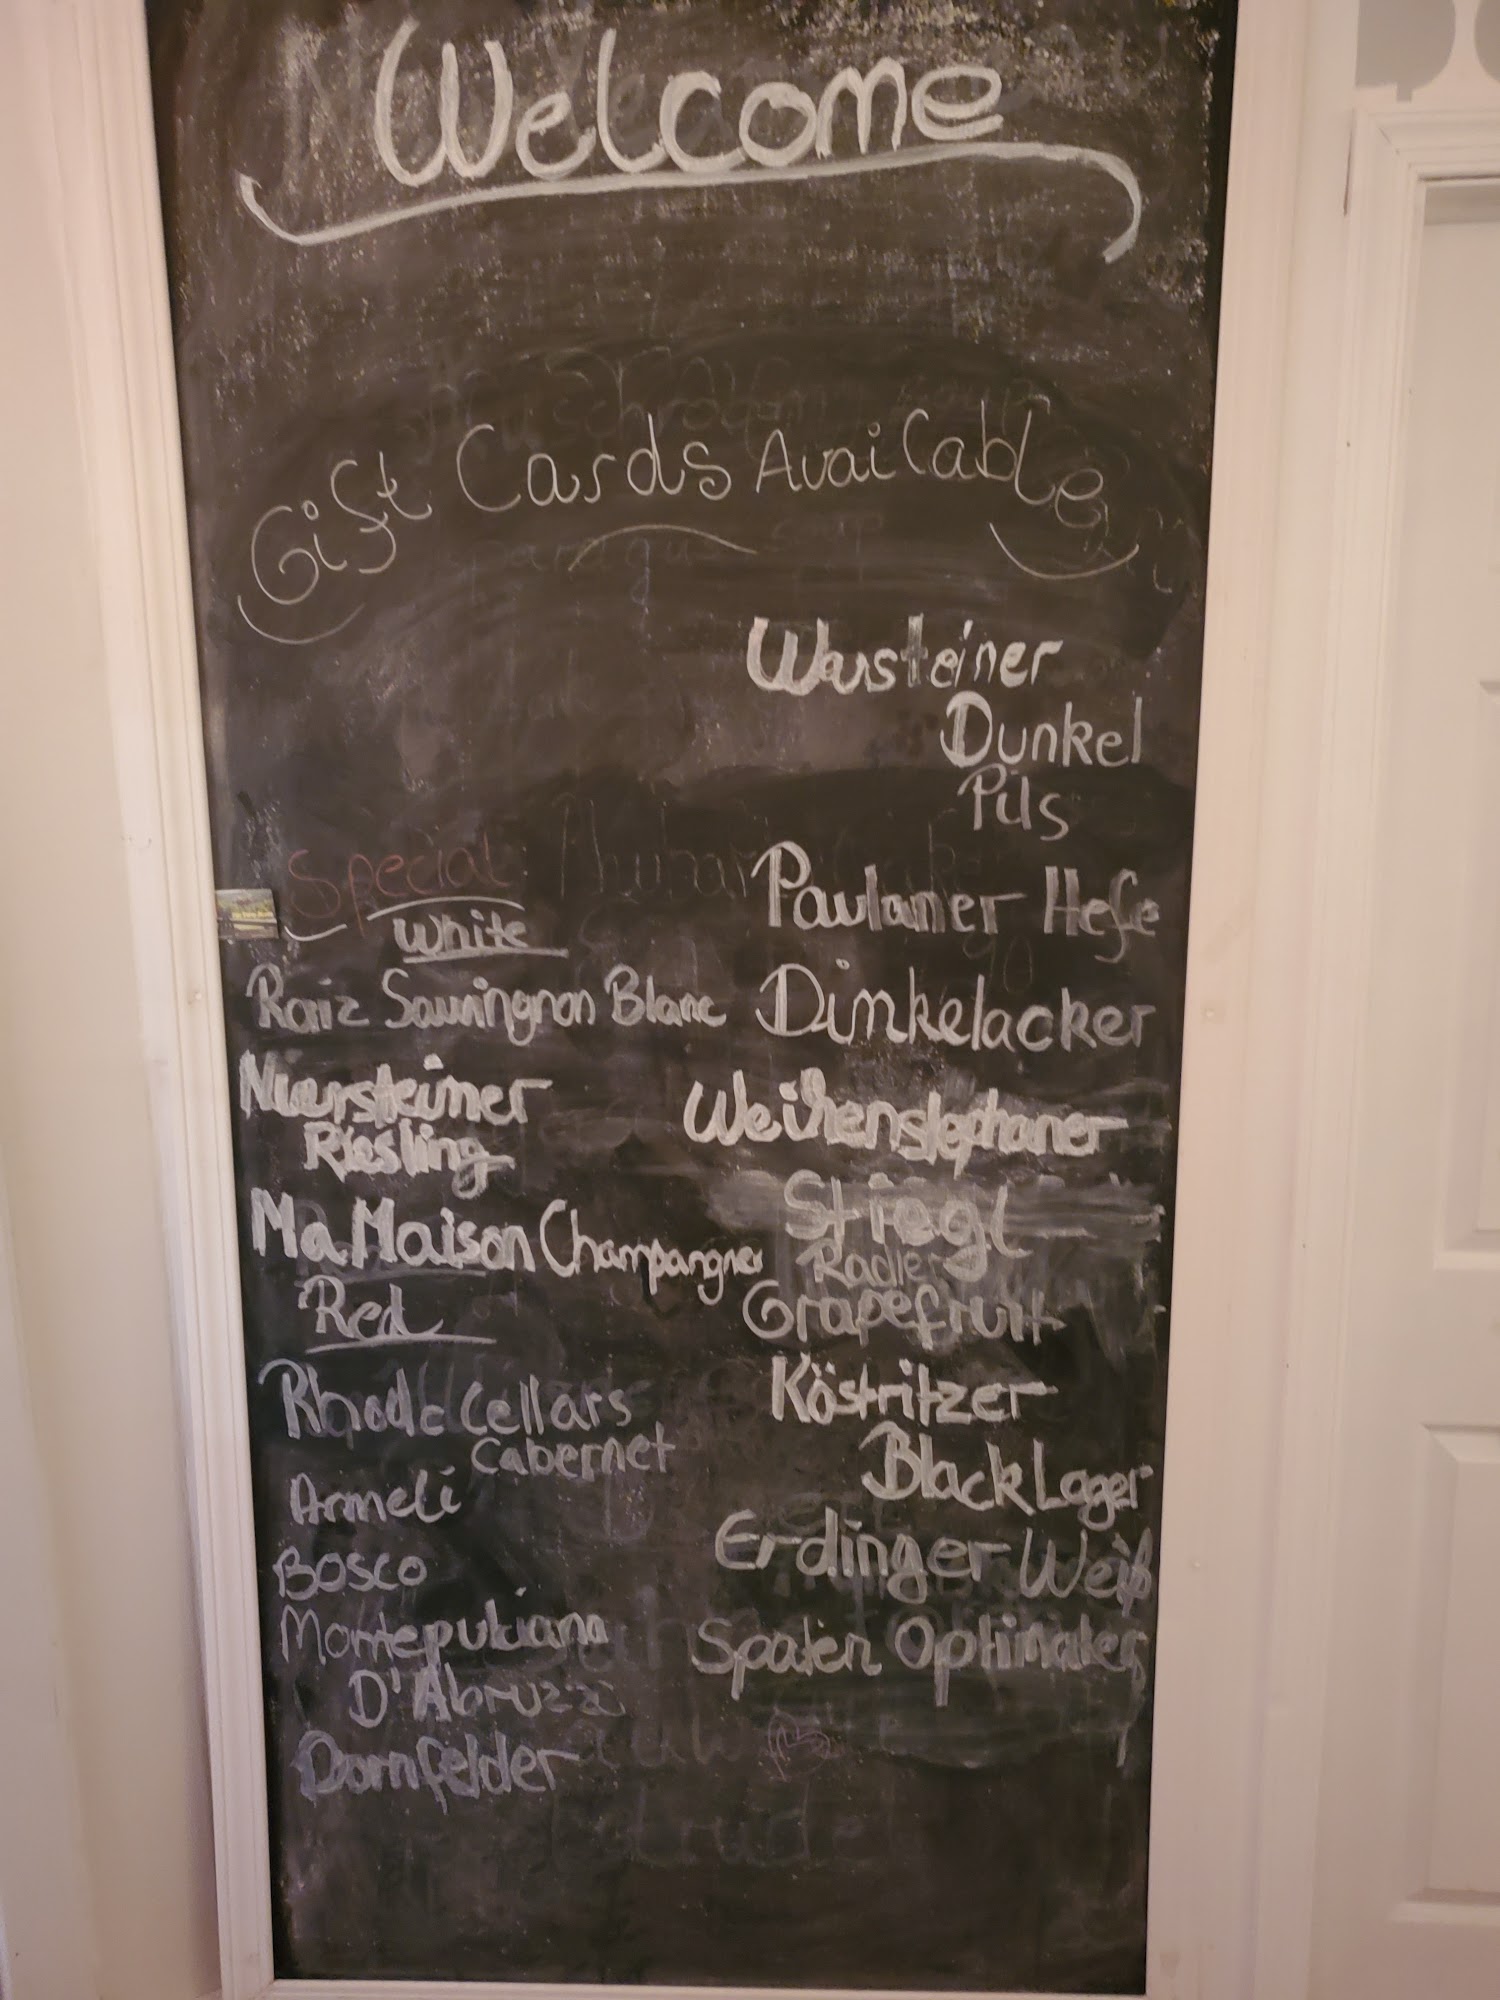 Welcome
Gift Cards Available
Special
White
Raiz Sauvingnon Blanc
Niersteiner
Riesling
Ma Maison Champangner
Red
Rhode Cellars
Cabernet
Armeli
Bosco
Montepulciano
D'Abruzzi
Dornfelder
Warsteiner
Dunkel
Pils
Paulaner Hefe
Dinkelacker
Weihenstephaner
Stiegl
Radler
Grapefruit
Köstritzer
Black Lager
Erdinger Weiß
Spaten Optimater